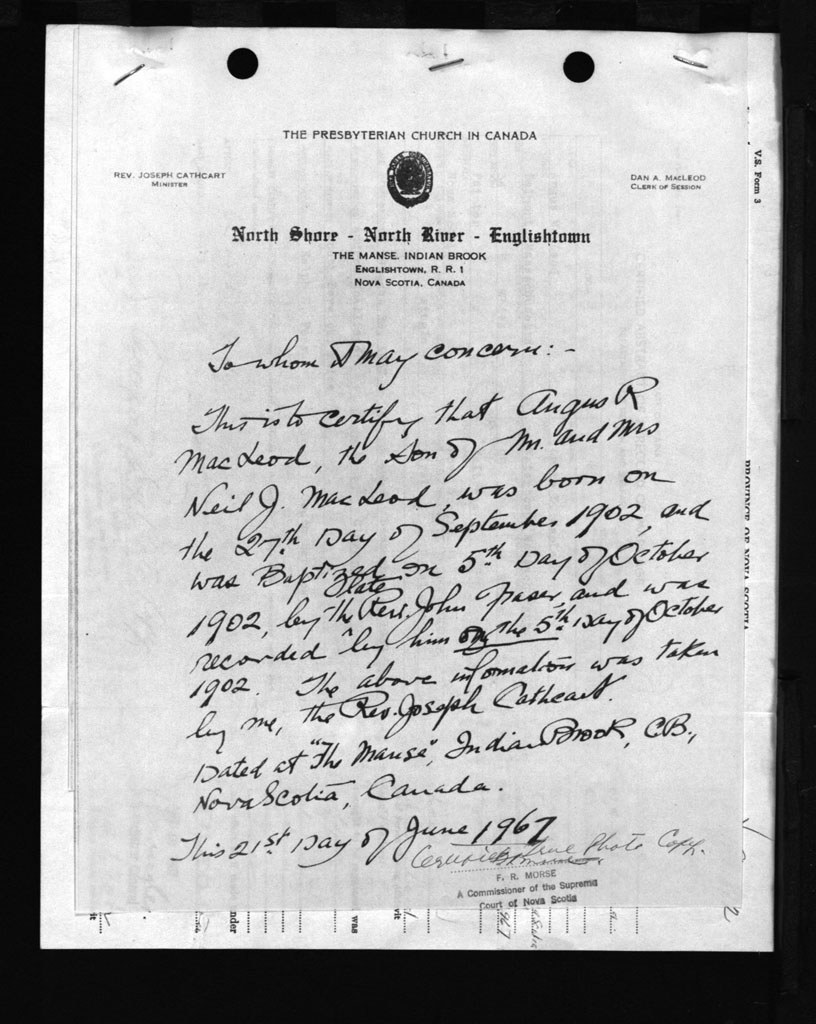 THE PRESBYTERIAN CHURCH IN CANADA
REV. JOSEPH CATHCART
MINISTER
DAN A. MACLEOD
CLERK OF SESSION
North Shore - North River - Englishtown
THE MANSE, INDIAN BROOK
ENGLISHTOWN, R. R. 1
NOVA SCOTIA, CANADA
V.S. Form 3
To whom It may concern: -
This is to certify that Angus R
MacLeod, the Son of Mr. and Mrs
Neil J. MacLeod, was born on
the 27th Day of September 1902, and
was Baptized on 5th Day of October
1902, by the late Rev. John Fraser and was
recorded by him on the 5th Day of October
1902. The above information was taken
by me, the Rev. Joseph Cathcart.
Dated at "The Manse", Indian Brook, C.B.,
Nova Scotia, Canada.
This 21st Day of June 1967
Certified True Photo Copy.
F. R. MORSE
A Commissioner of the Supreme
Court of Nova Scotia
PROVINCE OF NOVA SCOTIA
nder
was